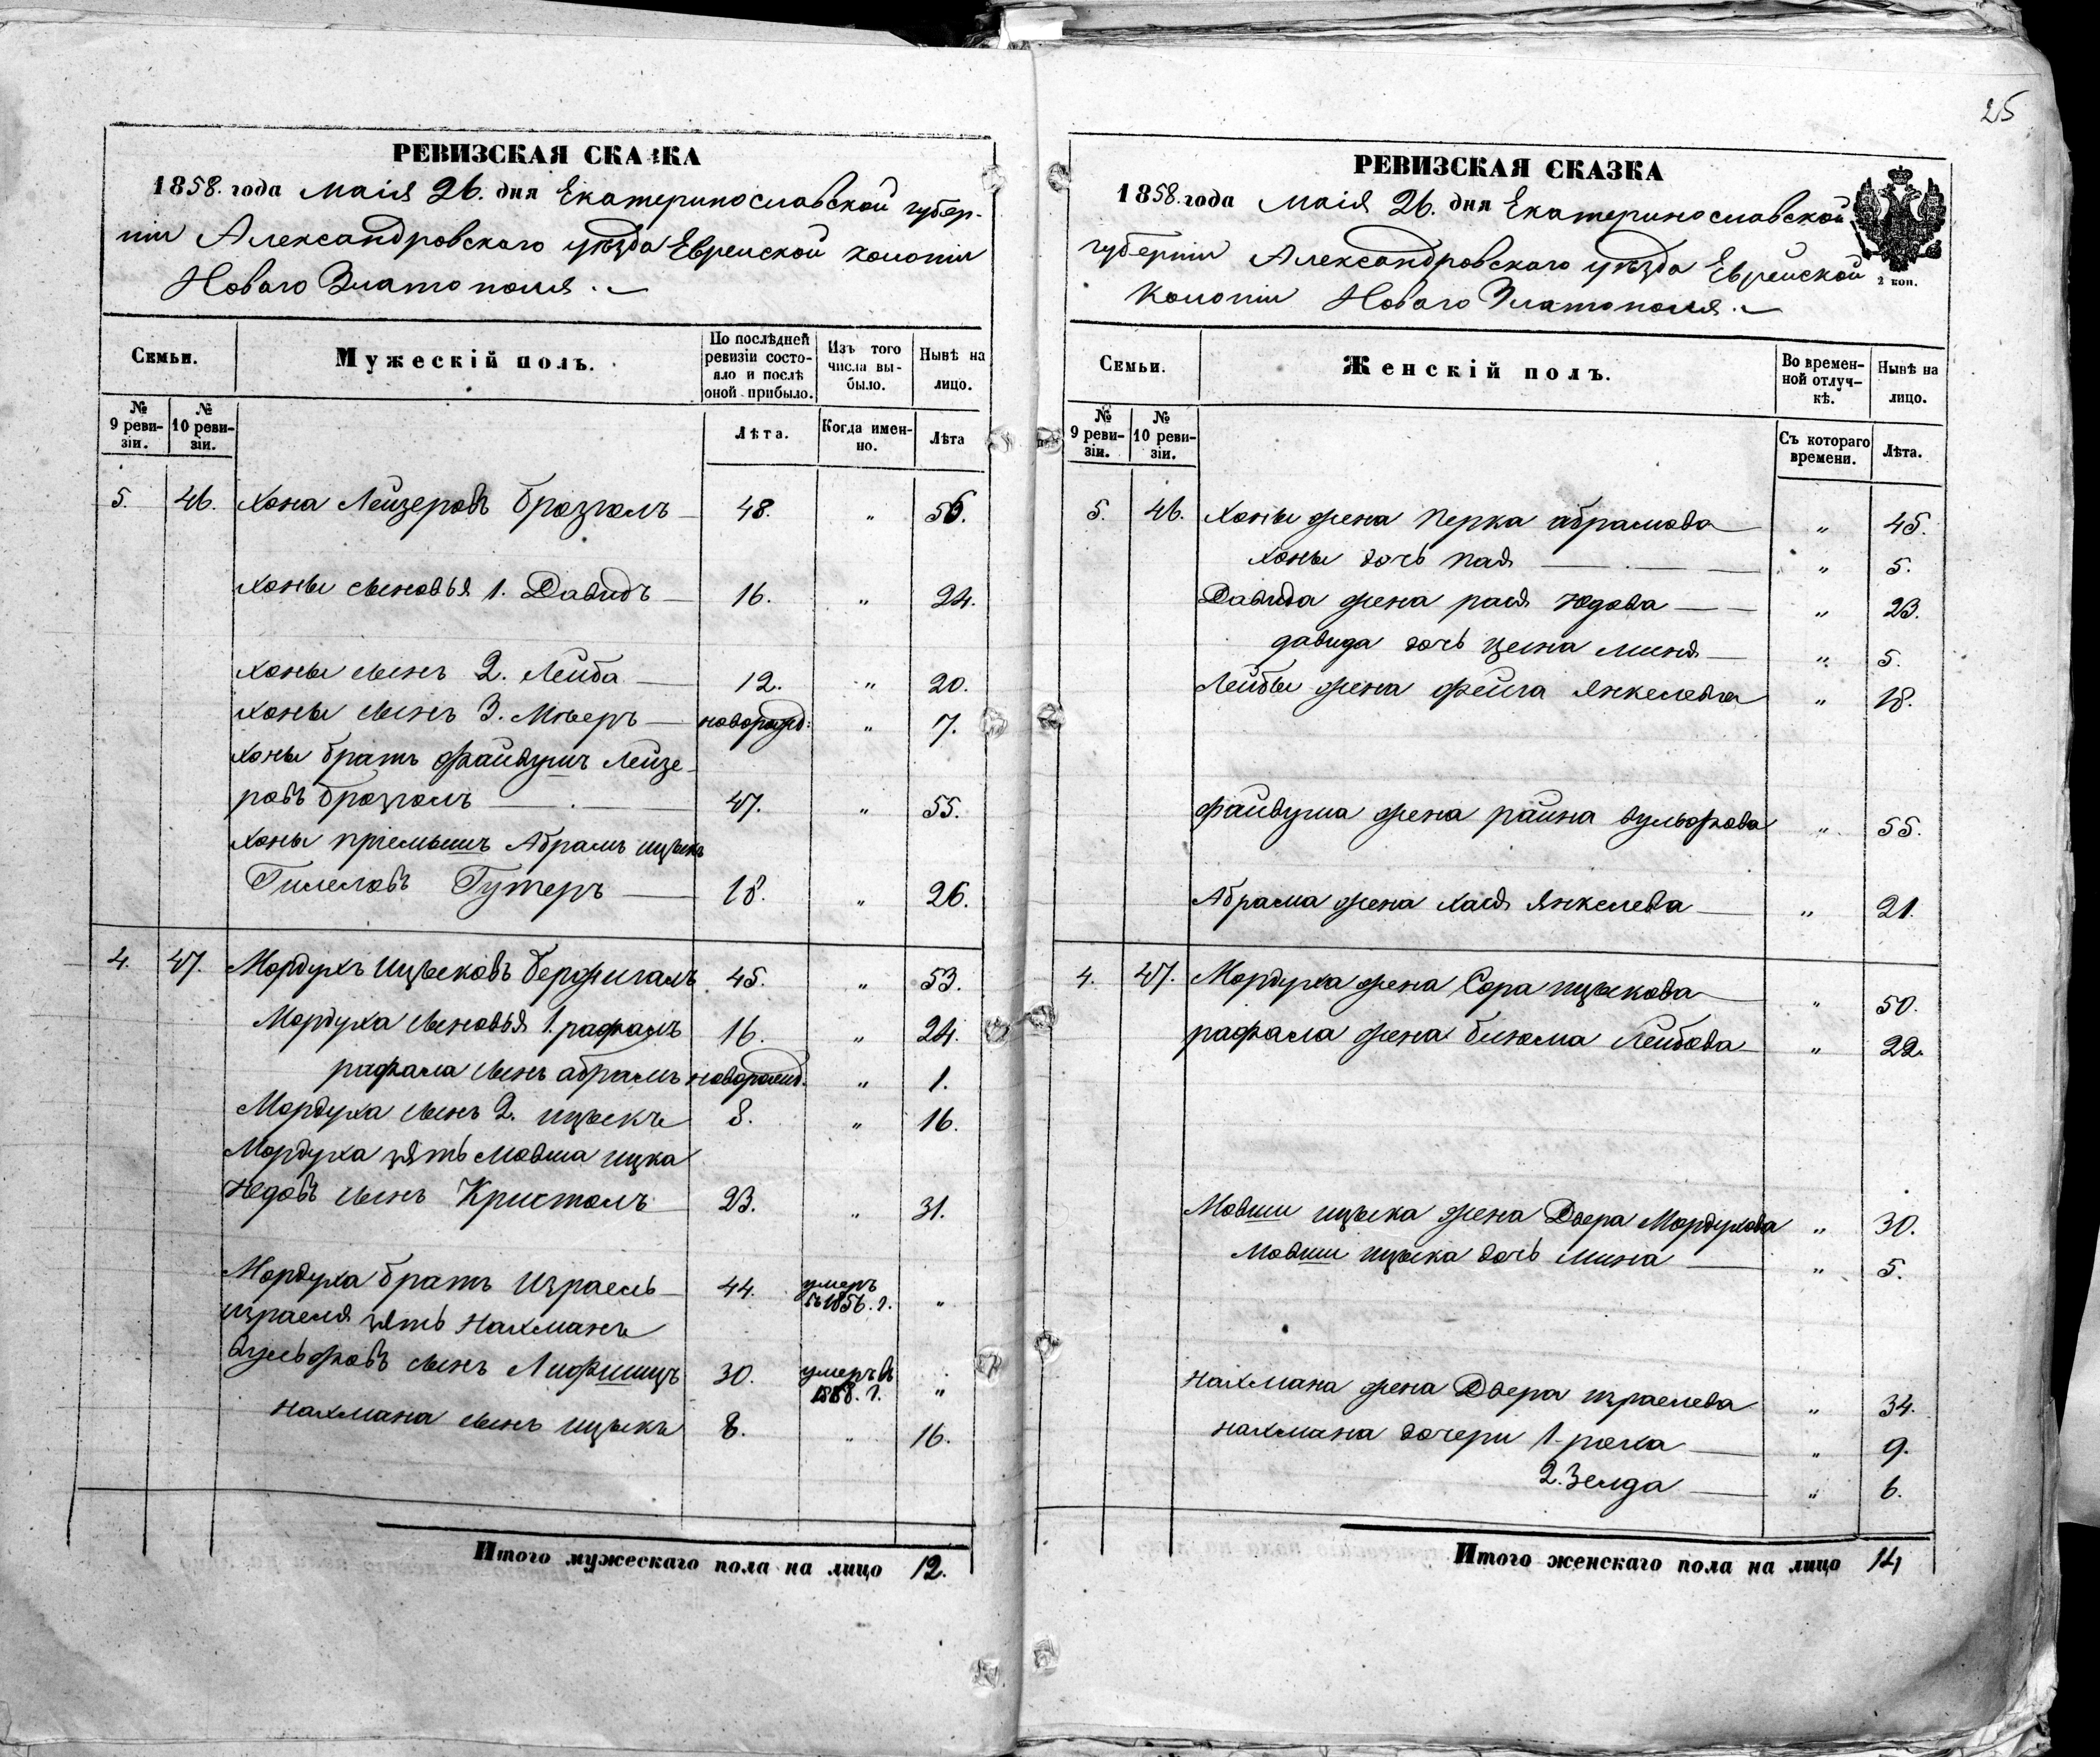 25
РЕВИЗСКАЯ СКАЗКА
1858. года маія 26. дня Екатеринославской губер-
ніи Александровскаго уѣзда Еврейской колоніи
Новаго Златополя.
Семьи.
Мужескій полъ.
По послѣдней ревизіи состо-яло и послѣ оной прибыло.
Изъ того числа вы-было.
Нынѣ на лицо.
№ 9 реви-зіи.
№ 10 реви-зіи.
Лѣта.
Когда имен-но.
Лѣта
5. 46. Хона Лейзеровъ Бразголь 48. „ 56.
Хоны сыновья 1. Давидъ 16. „ 24.
Хоны сынъ 2. Лейба 12. „ 20.
Хоны сынъ 3. Мееръ новорожд: „ 7.
Хоны братъ Файвушъ Лейзе-
ровъ Бразголь 47. „ 55.
Хоны пріемышъ Абрамъ ицыкъ
Гилеловъ Гутеръ 18. „ 26.
4. 47. Мордухъ Ицыковъ 45. „ 53.
Мордуха сыновья 1. рафаль 16. „ 24.
рафала сынъ абрамъ новорожд. „ 1.
Мордуха сынъ 2. ицыкъ 8. „ 16.
Мордуха зять Мовша ицка
Юдовъ сынъ Кристаль 23. „ 31.
Мордуха братъ Израель 44. умеръ въ 1856. г. „
израеля зять Нахманъ
вульфовъ сынъ Лифшицъ 30. умеръ въ 1858. г. „
нахмана сынъ ицыкъ 8. „ 16.
Итого мужескаго пола на лицо 12.
РЕВИЗСКАЯ СКАЗКА
1858. года маія 26. дня Екатеринославской
губерніи Александровскаго уѣзда Еврейской
Колоніи Новаго Златополя.
2 коп.
Семьи.
Женскій полъ.
Во времен-ной отлуч-кѣ.
Нынѣ на лицо.
№ 9 реви-зіи.
№ 10 реви-зіи.
Съ котораго времени.
Лѣта.
5. 46. Хоны жена Перка абрамова „ 45.
хоны дочь „ 5.
Давида жена рася Юдова „ 23.
давида дочь миня „ 5.
Лейбы жена фейга Янкелева „ 18.
файвуша жена райна вульфова „ 55.
Абрама жена хася Янкелева „ 21.
4. 47. Мордуха жена Сора ицыкова „ 50.
рафала жена блюма Лейбова „ 22.
Мовши ицыка жена Двера Мордухова „ 30.
Мовши ицыка дочь мина „ 5.
нахмана жена Двера израелева „ 34.
нахмана дочери 1. роха „ 9.
2. Зелда „ 6.
Итого женскаго пола на лицо 14